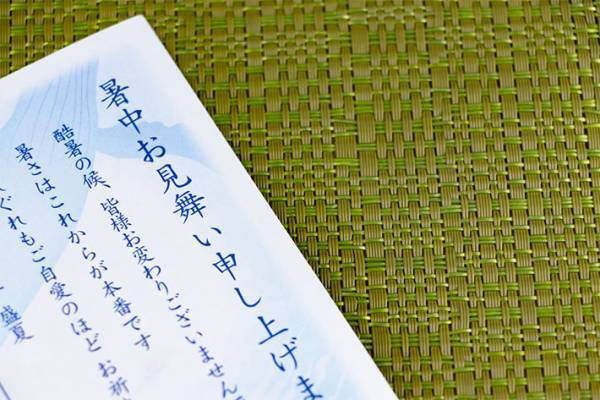 暑中お見舞い申し上げま
酷暑の候、皆様お変わりございません
暑さはこれからが本番です
ぐれもご自愛のほどお祈
盛夏